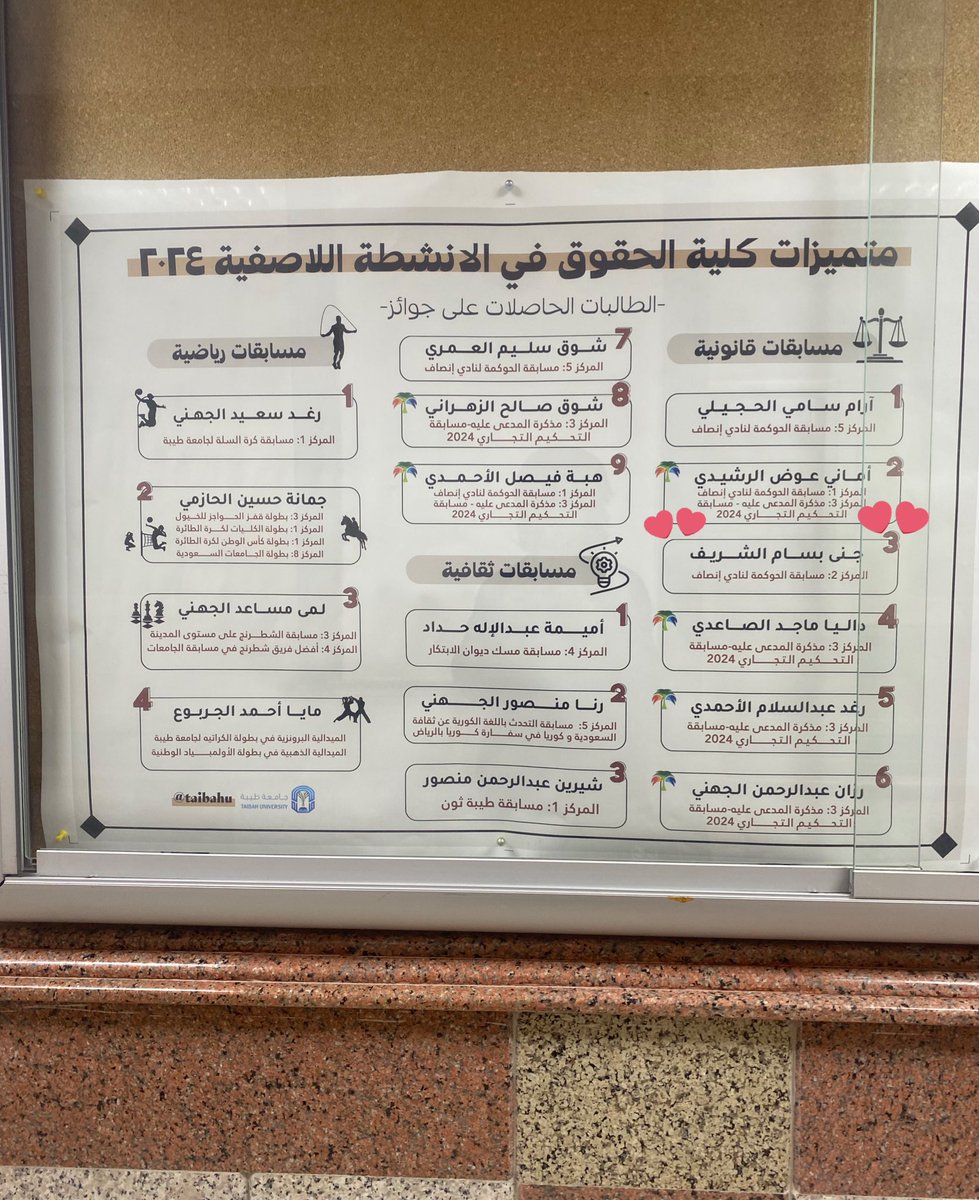 متميزات كلية الحقوق في الانشطة اللاصفية ٢٠٢٤
-الطالبات الحاصلات على جوائز-
مسابقات قانونية
1
آرام سامي الحجيلي
المركز 5: مسابقة الحوكمة لنادي إنصاف
2
أماني عوض الرشيدي
المركز 1: مسابقة الحوكمة لنادي إنصاف
المركز 3: مذكرة المدعى عليه - مسابقة
التحكيم التجاري 2024
3
جنى بسام الشريف
المركز 2: مسابقة الحوكمة لنادي إنصاف
4
داليا ماجد الصاعدي
المركز 3: مذكرة المدعى عليه-مسابقة
التحكيم التجاري 2024
5
رغد عبدالسلام الأحمدي
المركز 3: مذكرة المدعى عليه-مسابقة
التحكيم التجاري 2024
6
رزان عبدالرحمن الجهني
المركز 3: مذكرة المدعى عليه-مسابقة
التحكيم التجاري 2024
7
شوق سليم العمري
المركز 5: مسابقة الحوكمة لنادي إنصاف
8
شوق صالح الزهراني
المركز 3: مذكرة المدعى عليه-مسابقة
التحكيم التجاري 2024
9
هبة فيصل الأحمدي
المركز 1: مسابقة الحوكمة لنادي إنصاف
المركز 3: مذكرة المدعى عليه - مسابقة
التحكيم التجاري 2024
مسابقات ثقافية
1
أميمة عبدالإله حداد
المركز 4: مسابقة مسك ديوان الابتكار
2
رنا منصور الجهني
المركز 5: مسابقة التحدث باللغة الكورية عن ثقافة
السعودية و كوريا في سفارة كوريا بالرياض
3
شيرين عبدالرحمن منصور
المركز 1: مسابقة طيبة ثون
مسابقات رياضية
1
رغد سعيد الجهني
المركز 1: مسابقة كرة السلة لجامعة طيبة
2
جمانة حسين الحازمي
المركز 3: بطولة قفز الحواجز للخيول
المركز 1: بطولة الكليات لكرة الطائرة
المركز 1: بطولة كأس الوطن لكرة الطائرة
المركز 8: بطولة الجامعات السعودية
3
لمى مساعد الجهني
المركز 3: مسابقة الشطرنج على مستوى المدينة
المركز 4: أفضل فريق شطرنج في مسابقة الجامعات
4
مايا أحمد الجربوع
الميدالية البرونزية في بطولة الكراتيه لجامعة طيبة
الميدالية الذهبية في بطولة الأولمبياد الوطنية
@taibahu
جامعة طيبة
TAIBAH UNIVERSITY